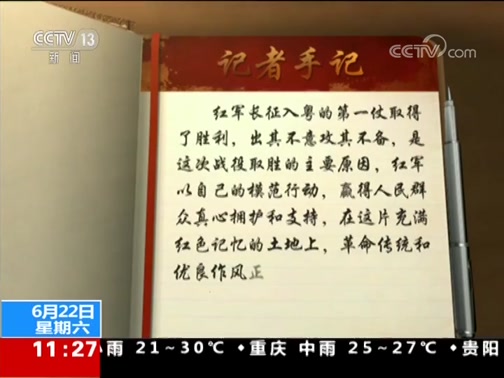 CCTV 13
新闻
CCTV com
记者手记
红军长征入粤的第一仗取得
了胜利，出其不意攻其不备，是
这次战役取胜的主要原因，红军
以自己的模范行动，赢得人民群
众真心拥护和支持，在这片充满
红色记忆的土地上，革命传统和
优良作风正
6月22日
星期六
11:27
小雨 21～30℃ ·重庆 中雨 25～27℃ ·贵阳